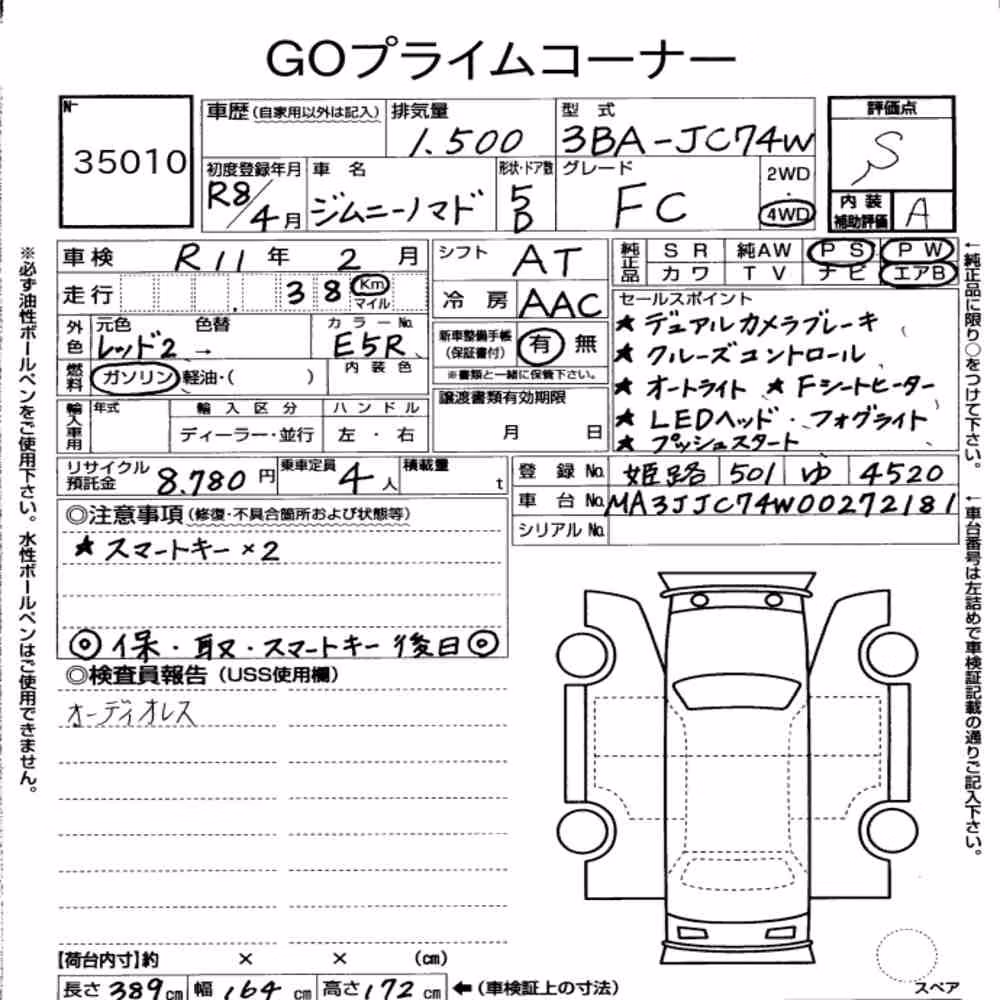 GOプライムコーナー
№
35010
車歴(自家用以外は記入)
排気量
1.500
型 式
3BA-JC74W
評価点
S
初度登録年月
R8/4月
車 名
ジムニーノマド
形状・ドア数
5D
グレード
FC
2WD
4WD
内装
補助評価
A
車検 R11年 2月
走行 38 Km
マイル
外色
元色 色替
レッド2 →
カラーNo.
E5R
内装色
燃料
ガソリン 軽油・( )
輸入車用
年式
輸入区分
ディーラー・並行
ハンドル
左・右
シフト AT
冷房 AAC
新車整備手帳
(保証書付)
有 無
※書類と一緒に保管下さい。
譲渡書類有効期限
月 日
純正品
SR 純AW PS PW
カワ TV ナビ エアB
セールスポイント
★ デュアルカメラブレーキ
★ クルーズコントロール
★ オートライト ★ Fシートヒーター
★ LEDヘッド・フォグライト
★ プッシュスタート
リサイクル
預託金
8.780円
乗車定員 4人
積載量 t
登録No. 姫路 501 ゆ 4520
車台No. MA3JJC74W00272181
シリアルNo.
◎注意事項(修復・不具合箇所および状態等)
★ スマートキー×2
◎保・取・スマートキー後日◎
◎検査員報告(USS使用欄)
オーディオレス
【荷台内寸】約 × × (cm)
長さ 389cm 幅 164cm 高さ 172cm ←(車検証上の寸法)
スペア
※必ず油性ボールペンをご使用下さい。水性ボールペンはご使用できません。
←純正品に限り○をつけて下さい。
←車台番号は左詰めで車検証記載の通りご記入下さい。